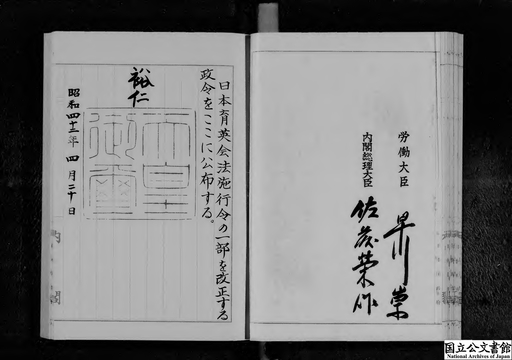 労働大臣 早川崇
内閣総理大臣 佐藤栄作
日本育英会法施行令の一部を改正する
政令をここに公布する。
裕仁
天皇
御璽
昭和四十二年四月二十日
国立公文書館
National Archives of Japan